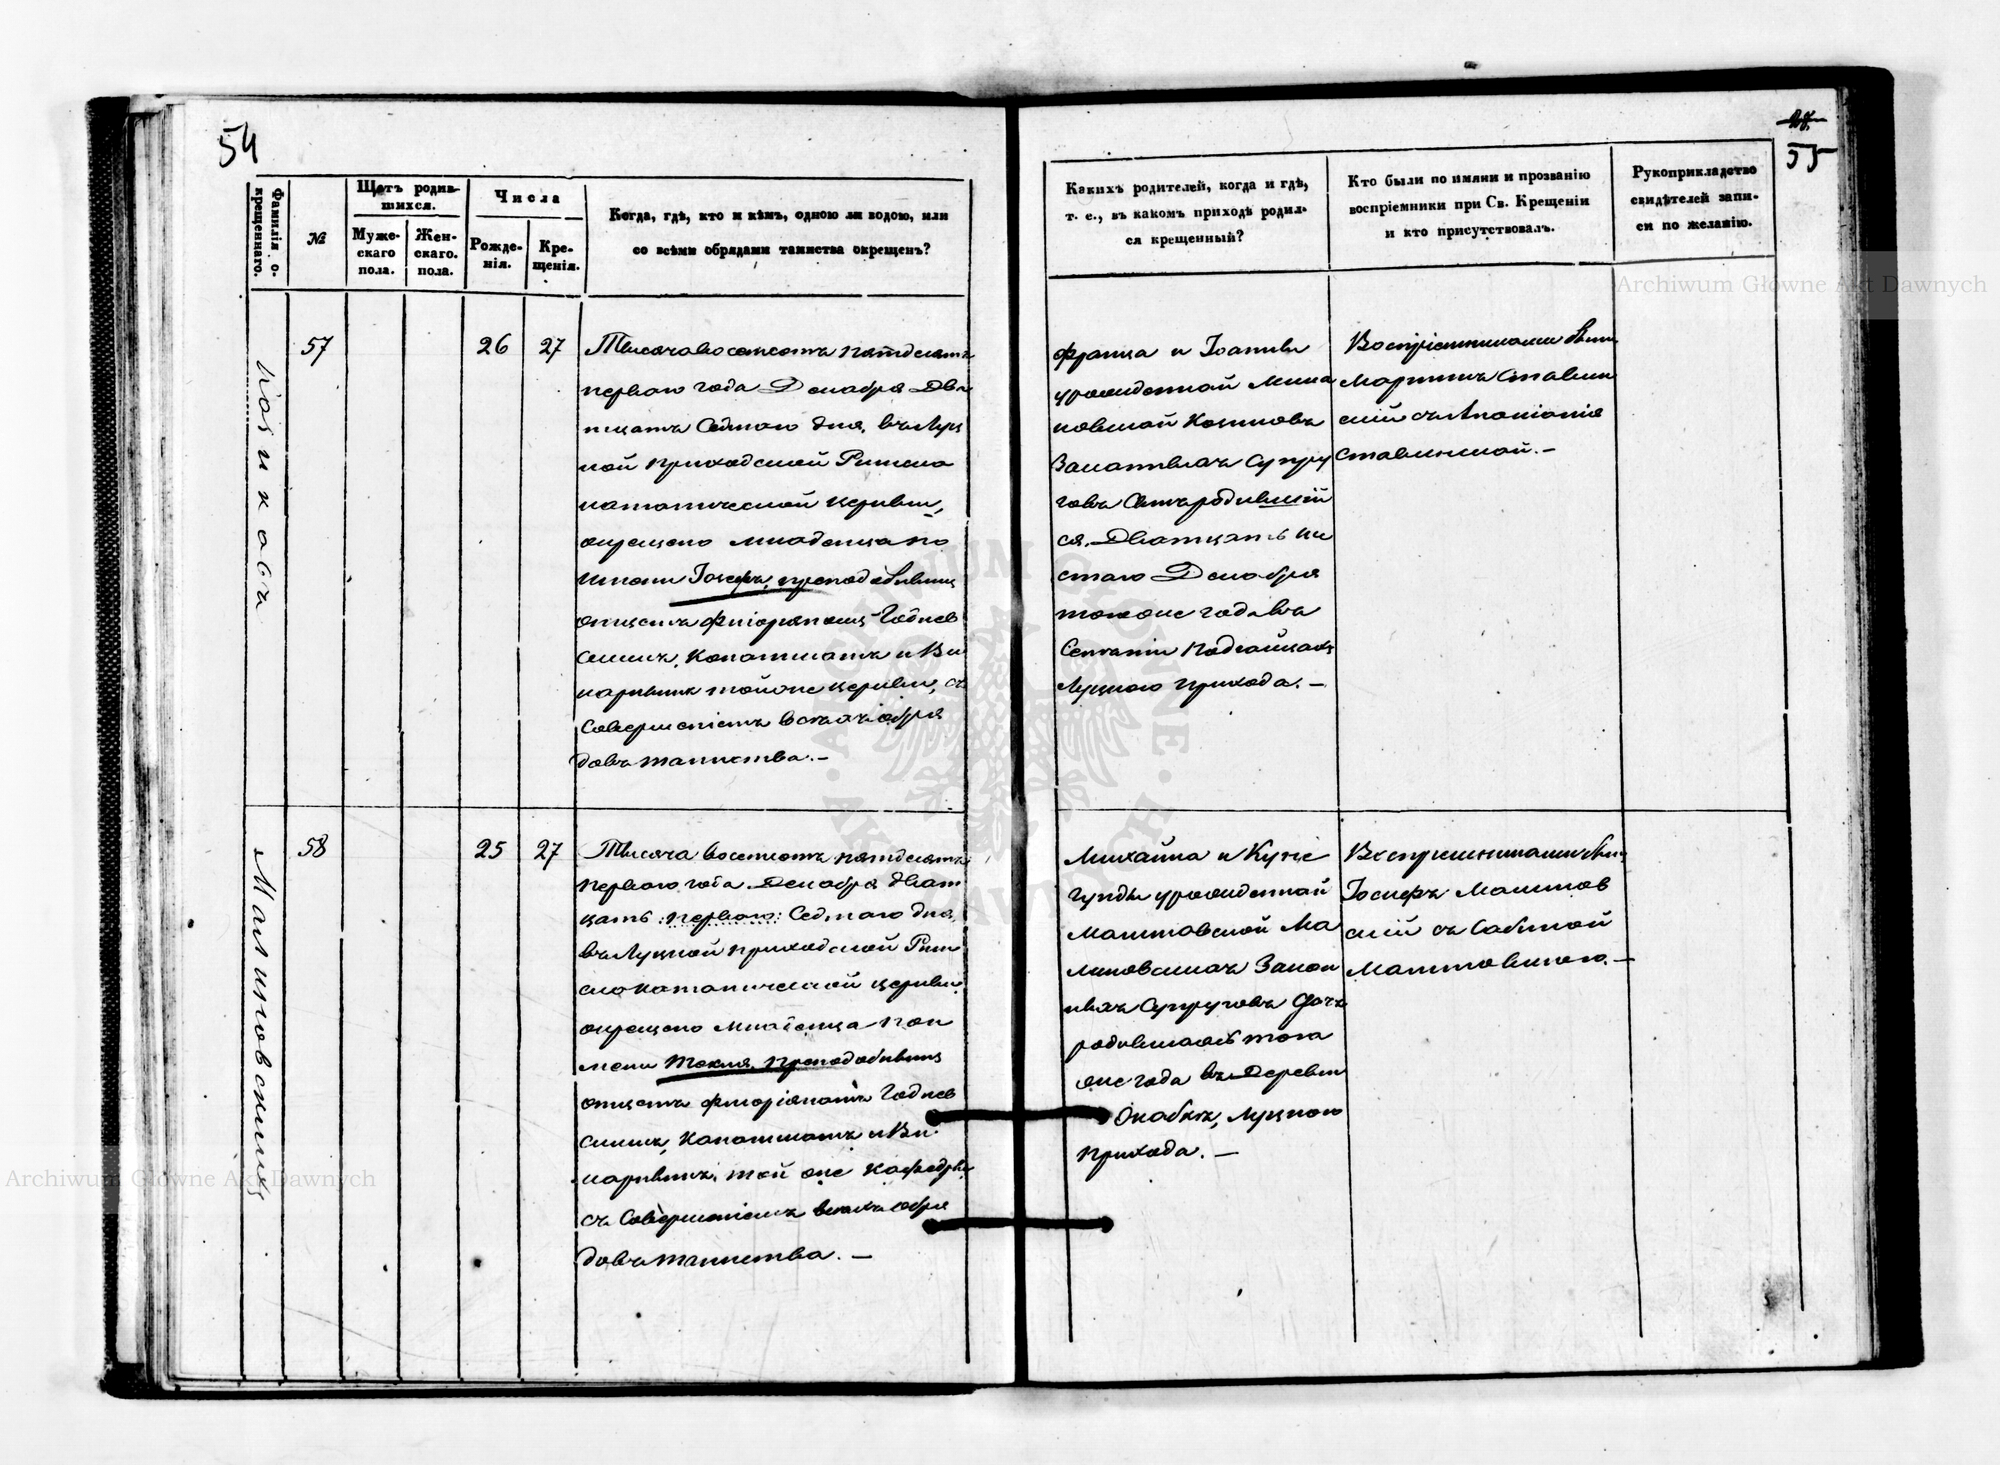 54
Фамилія о-
крещеннаго.
№
Щетъ родив-
шихся.
Муже-
скаго
пола.
Жен-
скаго.
пола.
Числа
Рожде-
нія.
Кре-
щенія.
Когда, гдѣ, кто и кѣмъ, одною ли водою, или
со всѣми обрядами таинства окрещенъ?
57
26
27
Тысяча восемсотъ пятдесятъ
перваго года Декабря Два
пцать Седмаго дня, въ Луц
кой приходской Римско
католической церкви,
окрещено младенца по
имени Іосифъ, преподобнымъ
отцемъ Флоріаномъ Годлев
скимъ, Капланомъ и Ви
каріимъ тойже церкви, съ
Совершеніемъ всѣхъ обря
довъ таинства. –
Малиновскихъ
58
25
27
Тысяча восемсотъ пятдесятъ
перваго года Декабря дват
цать :перваго: Седмаго дня
въ Луцкой приходской Рим
ско католической церкви
окрещено младенца по и
мени Текля, Преподобнымъ
отцемъ Флоріаномъ Годлев
скимъ, Капланомъ и Ви
каріимъ, той же Кафедры
съ Совершеніемъ всѣхъ обря
довъ таинства. —
27
55
Какихъ родителей, когда и гдѣ,
т. е., въ какомъ приходѣ родил-
ся крещенный?
Кто были по имяни и прозванію
воспріемники при Св. Крещеніи
и кто присутствовалъ.
Рукоприкладство
свидѣтелей запи-
си по желанію.
Франца и Іоанны
урожденной
Законныхъ Супру
говъ Сынъ родившій
ся, Дватцать ше
стаго Декабря
тогоже года въ
Селеніи Подгайцахъ
Луцкаго прихода. —
Воспріемниками были
Мартинъ Ставин
скій съ Антоніною
Ставинской. –
Михаила и Куне
гунды урожденной
Малиновской Ма
линовскихъ Закон
ныхъ Супруговъ дочь
родившаясь того
же года въ Деревни
Омабахъ, Луцкого
прихода. —
Воспріемниками были
Іосифъ Малинов
скій съ Сабиной
Малиновскою. —
Archiwum Główne Akt Dawnych
Archiwum Główne Akt Dawnych